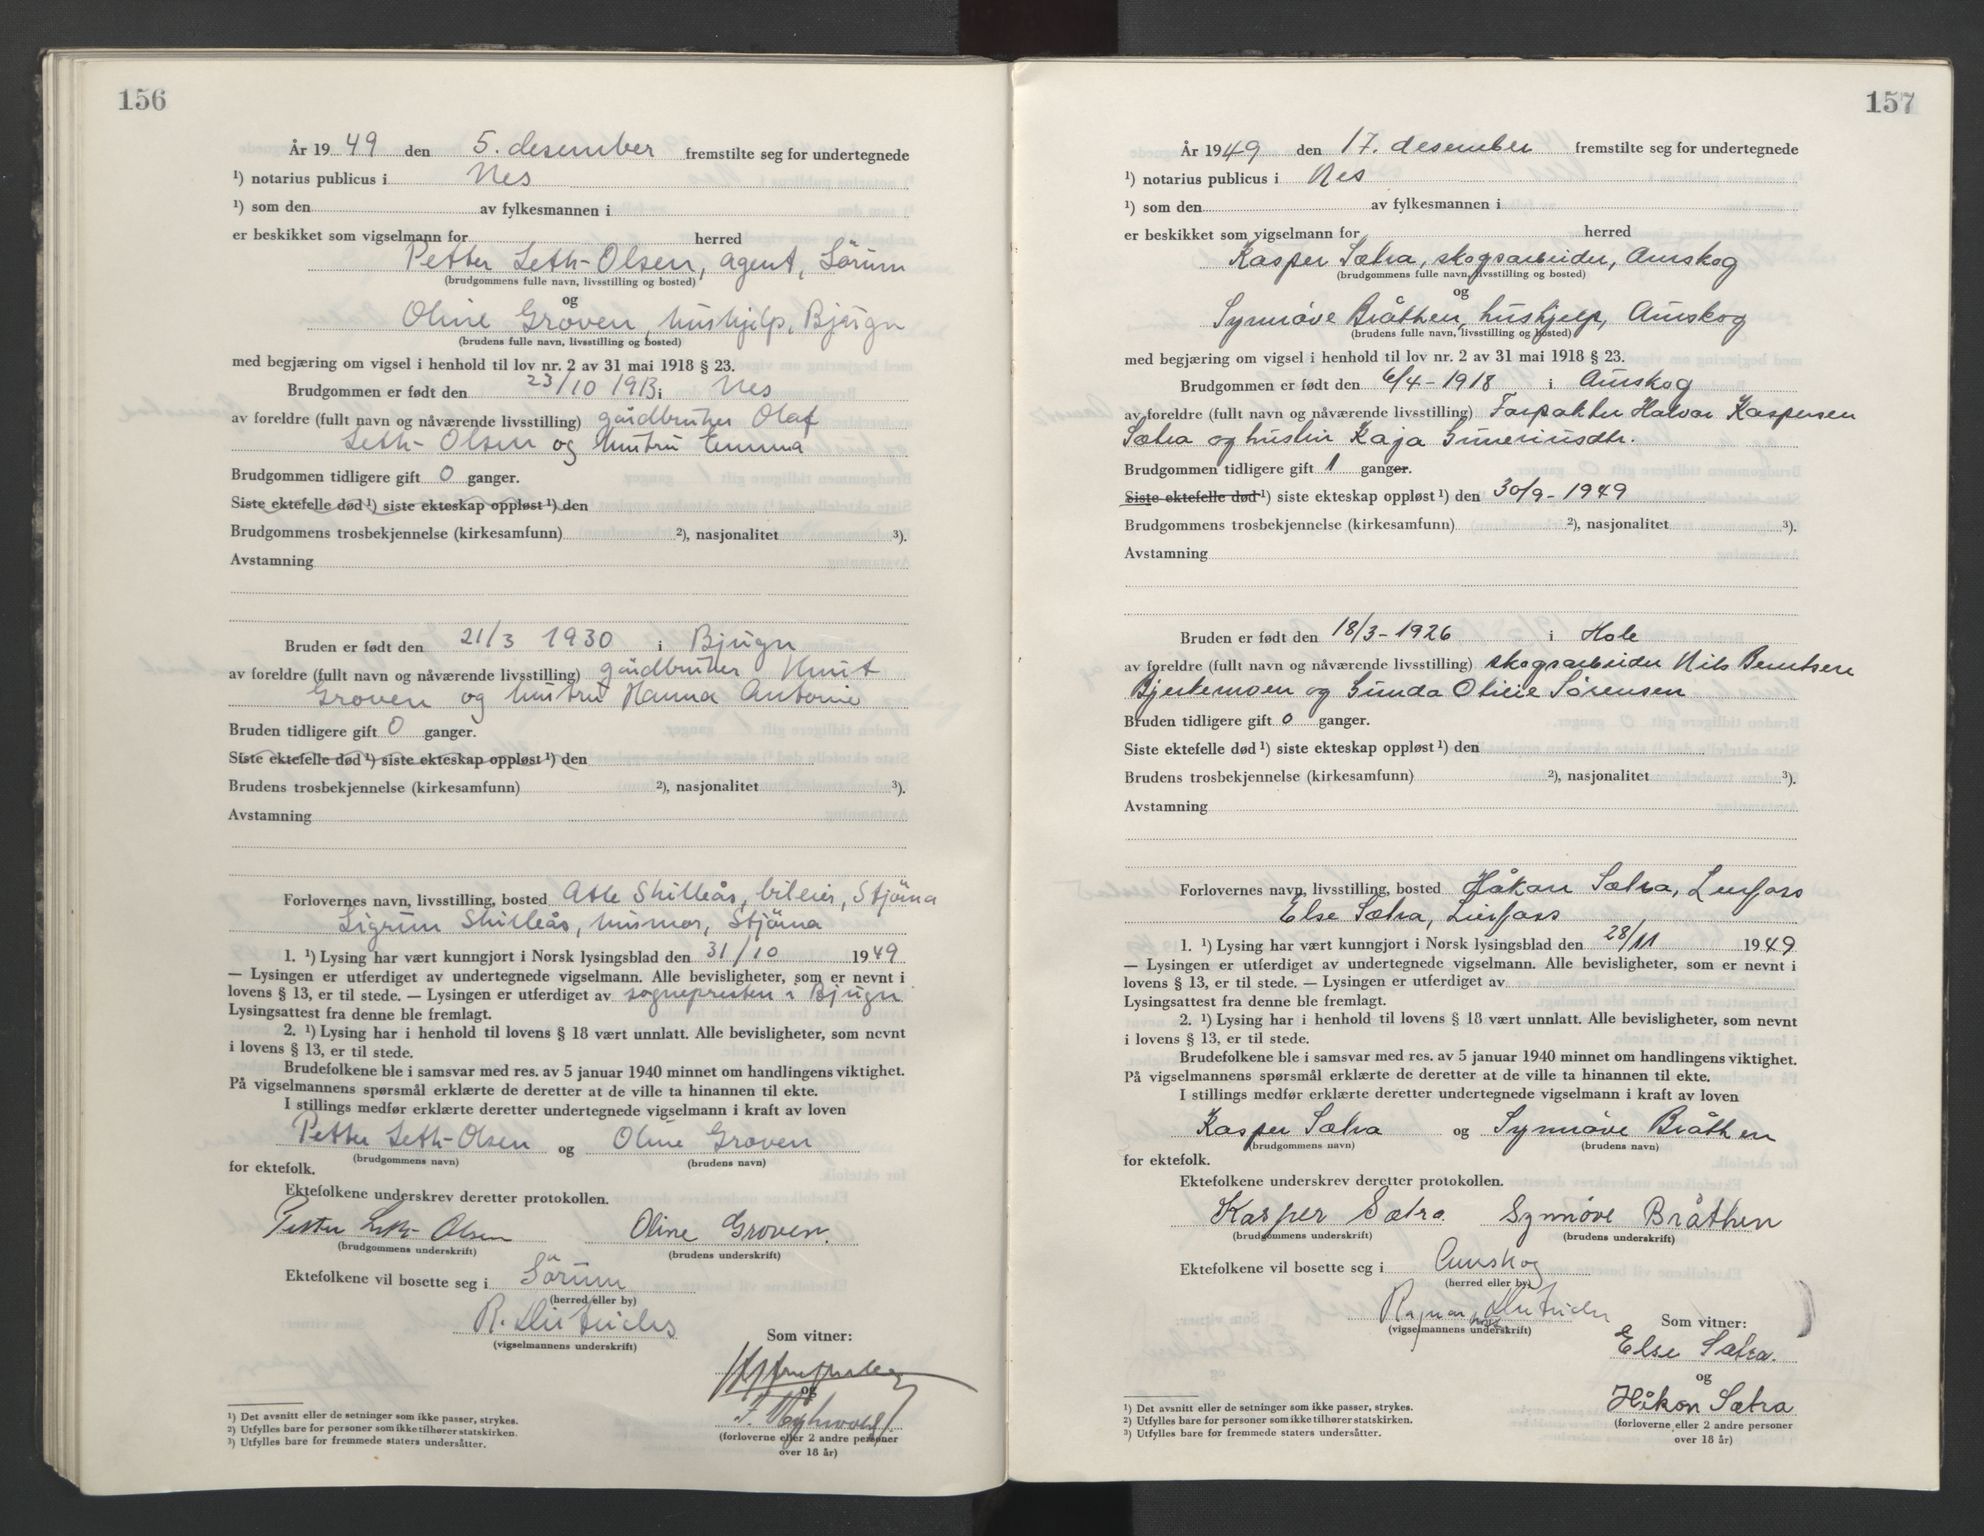 156
År 1949 den 5. desember fremstilte seg for undertegnede
¹) notarius publicus i Nes
¹) som den av fylkesmannen i
er beskikket som vigselmann for herred
Petter Seth-Olsen, agent, Sörum
(brudgommens fulle navn, livsstilling og bosted)
og
Oline Groven, hushjelp, Bjugn
(brudens fulle navn, livsstilling og bosted)
med begjæring om vigsel i henhold til lov nr. 2 av 31 mai 1918 § 23.
Brudgommen er født den 23/10 1913 i Nes
av foreldre (fullt navn og nåværende livsstilling) gårdbruker Olaf
Seth-Olsen og hustru Emma
Brudgommen tidligere gift 0 ganger.
Siste ektefelle død ¹) siste ekteskap oppløst ¹) den
Brudgommens trosbekjennelse (kirkesamfunn) ²), nasjonalitet ³).
Avstamning
Bruden er født den 21/3 1930 i Bjugn
av foreldre (fullt navn og nåværende livsstilling) gårdbruker Knut
Groven og hustru Hanna Antonie
Bruden tidligere gift 0 ganger.
Siste ektefelle død ¹) siste ekteskap oppløst ¹) den
Brudens trosbekjennelse (kirkesamfunn) ²), nasjonalitet ³).
Avstamning
Forlovernes navn, livsstilling, bosted Atle Skilleås, bileier, Stjörna
Sigrun Skilleås, husmor, Stjörna
1. ¹) Lysing har vært kunngjort i Norsk lysingsblad den 31/10 1949
— Lysingen er utferdiget av undertegnede vigselmann. Alle bevisligheter, som er nevnt i
lovens § 13, er til stede. — Lysingen er utferdiget av sognepresten i Bjugn
Lysingsattest fra denne ble fremlagt.
2. ¹) Lysing har i henhold til lovens § 18 vært unnlatt. Alle bevisligheter, som nevnt
i lovens § 13, er til stede.
Brudefolkene ble i samsvar med res. av 5 januar 1940 minnet om handlingens viktighet.
På vigselmannens spørsmål erklærte de deretter at de ville ta hinannen til ekte.
I stillings medfør erklærte deretter undertegnede vigselmann i kraft av loven
Petter Seth-Olsen og Oline Groven
(brudgommens navn) (brudens navn)
for ektefolk.
Ektefolkene underskrev deretter protokollen.
Petter Seth-Olsen Oline Groven.
(brudgommens underskrift) (brudens underskrift)
Ektefolkene vil bosette seg i Sörum
(herred eller by)
R.
(vigselmannens underskrift)
Som vitner:
og
(forloverne eller 2 andre personer
over 18 år)
¹) Det avsnitt eller de setninger som ikke passer, strykes.
²) Utfylles bare for personer som ikke tilhører statskirken.
³) Utfylles bare for fremmede staters undersåtter.
157
År 1949 den 17. desember fremstilte seg for undertegnede
¹) notarius publicus i Nes
¹) som den av fylkesmannen i
er beskikket som vigselmann for herred
Kasper Sætra, skogsarbeider, Aurskog
(brudgommens fulle navn, livsstilling og bosted)
og
Synnøve Bråthen, hushjelp, Aurskog
(brudens fulle navn, livsstilling og bosted)
med begjæring om vigsel i henhold til lov nr. 2 av 31 mai 1918 § 23.
Brudgommen er født den 6/4-1918 i Aurskog
av foreldre (fullt navn og nåværende livsstilling) Forpakter Halvor Kaspersen
Sætra og hustru Kaja Guneriusdtr.
Brudgommen tidligere gift 1 ganger.
Siste ektefelle død ¹) siste ekteskap oppløst ¹) den 30/9-1949
Brudgommens trosbekjennelse (kirkesamfunn) ²), nasjonalitet ³).
Avstamning
Bruden er født den 18/3-1926 i Hole
av foreldre (fullt navn og nåværende livsstilling) skogsarbeider Nils Berntsen
Bjerkemoen og Gunda Sørensen
Bruden tidligere gift 0 ganger.
Siste ektefelle død ¹) siste ekteskap oppløst ¹) den
Brudens trosbekjennelse (kirkesamfunn) ²), nasjonalitet ³).
Avstamning
Forlovernes navn, livsstilling, bosted Håkon Sætra, Lierfoss
Else Sætra, Lierfoss
1. ¹) Lysing har vært kunngjort i Norsk lysingsblad den 28/11 1949
— Lysingen er utferdiget av undertegnede vigselmann. Alle bevisligheter, som er nevnt i
lovens § 13, er til stede. — Lysingen er utferdiget av
Lysingsattest fra denne ble fremlagt.
2. ¹) Lysing har i henhold til lovens § 18 vært unnlatt. Alle bevisligheter, som nevnt
i lovens § 13, er til stede.
Brudefolkene ble i samsvar med res. av 5 januar 1940 minnet om handlingens viktighet.
På vigselmannens spørsmål erklærte de deretter at de ville ta hinannen til ekte.
I stillings medfør erklærte deretter undertegnede vigselmann i kraft av loven
Kasper Sætra og Synnøve Bråthen
(brudgommens navn) (brudens navn)
for ektefolk.
Ektefolkene underskrev deretter protokollen.
Kasper Sætra. Synnøve Bråthen
(brudgommens underskrift) (brudens underskrift)
Ektefolkene vil bosette seg i Aurskog
(herred eller by)
Ragnar
(vigselmannens underskrift)
Som vitner:
Else Sætra.
og
Håkon Sætra
(forloverne eller 2 andre personer
over 18 år)
¹) Det avsnitt eller de setninger som ikke passer, strykes.
²) Utfylles bare for personer som ikke tilhører statskirken.
³) Utfylles bare for fremmede staters undersåtter.